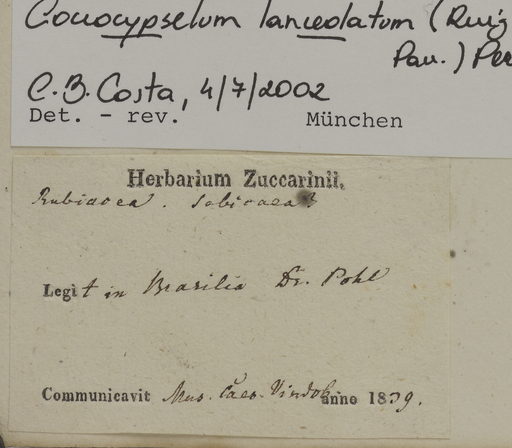 Coccocypselum lanceolatum (Ruiz
Pav.) Per
C.B. Costa, 4/7/2002
Det. - rev. München
Herbarium Zuccarinii.
Rubiacea. Sabicaea?
Legit in Brasilia Dr. Pohl
Communicavit Mus. Caes. Vindob. anno 1839.